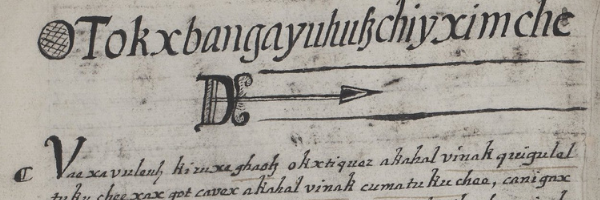 Tokxbangayuhuꜩchiyximche
Vae xavuleuꜩ kiruxe ghaoꜩ okxtiquez akahal vinak quigulel
tuku chee xax got cavex akahal vinak cumatuku chee, canigax